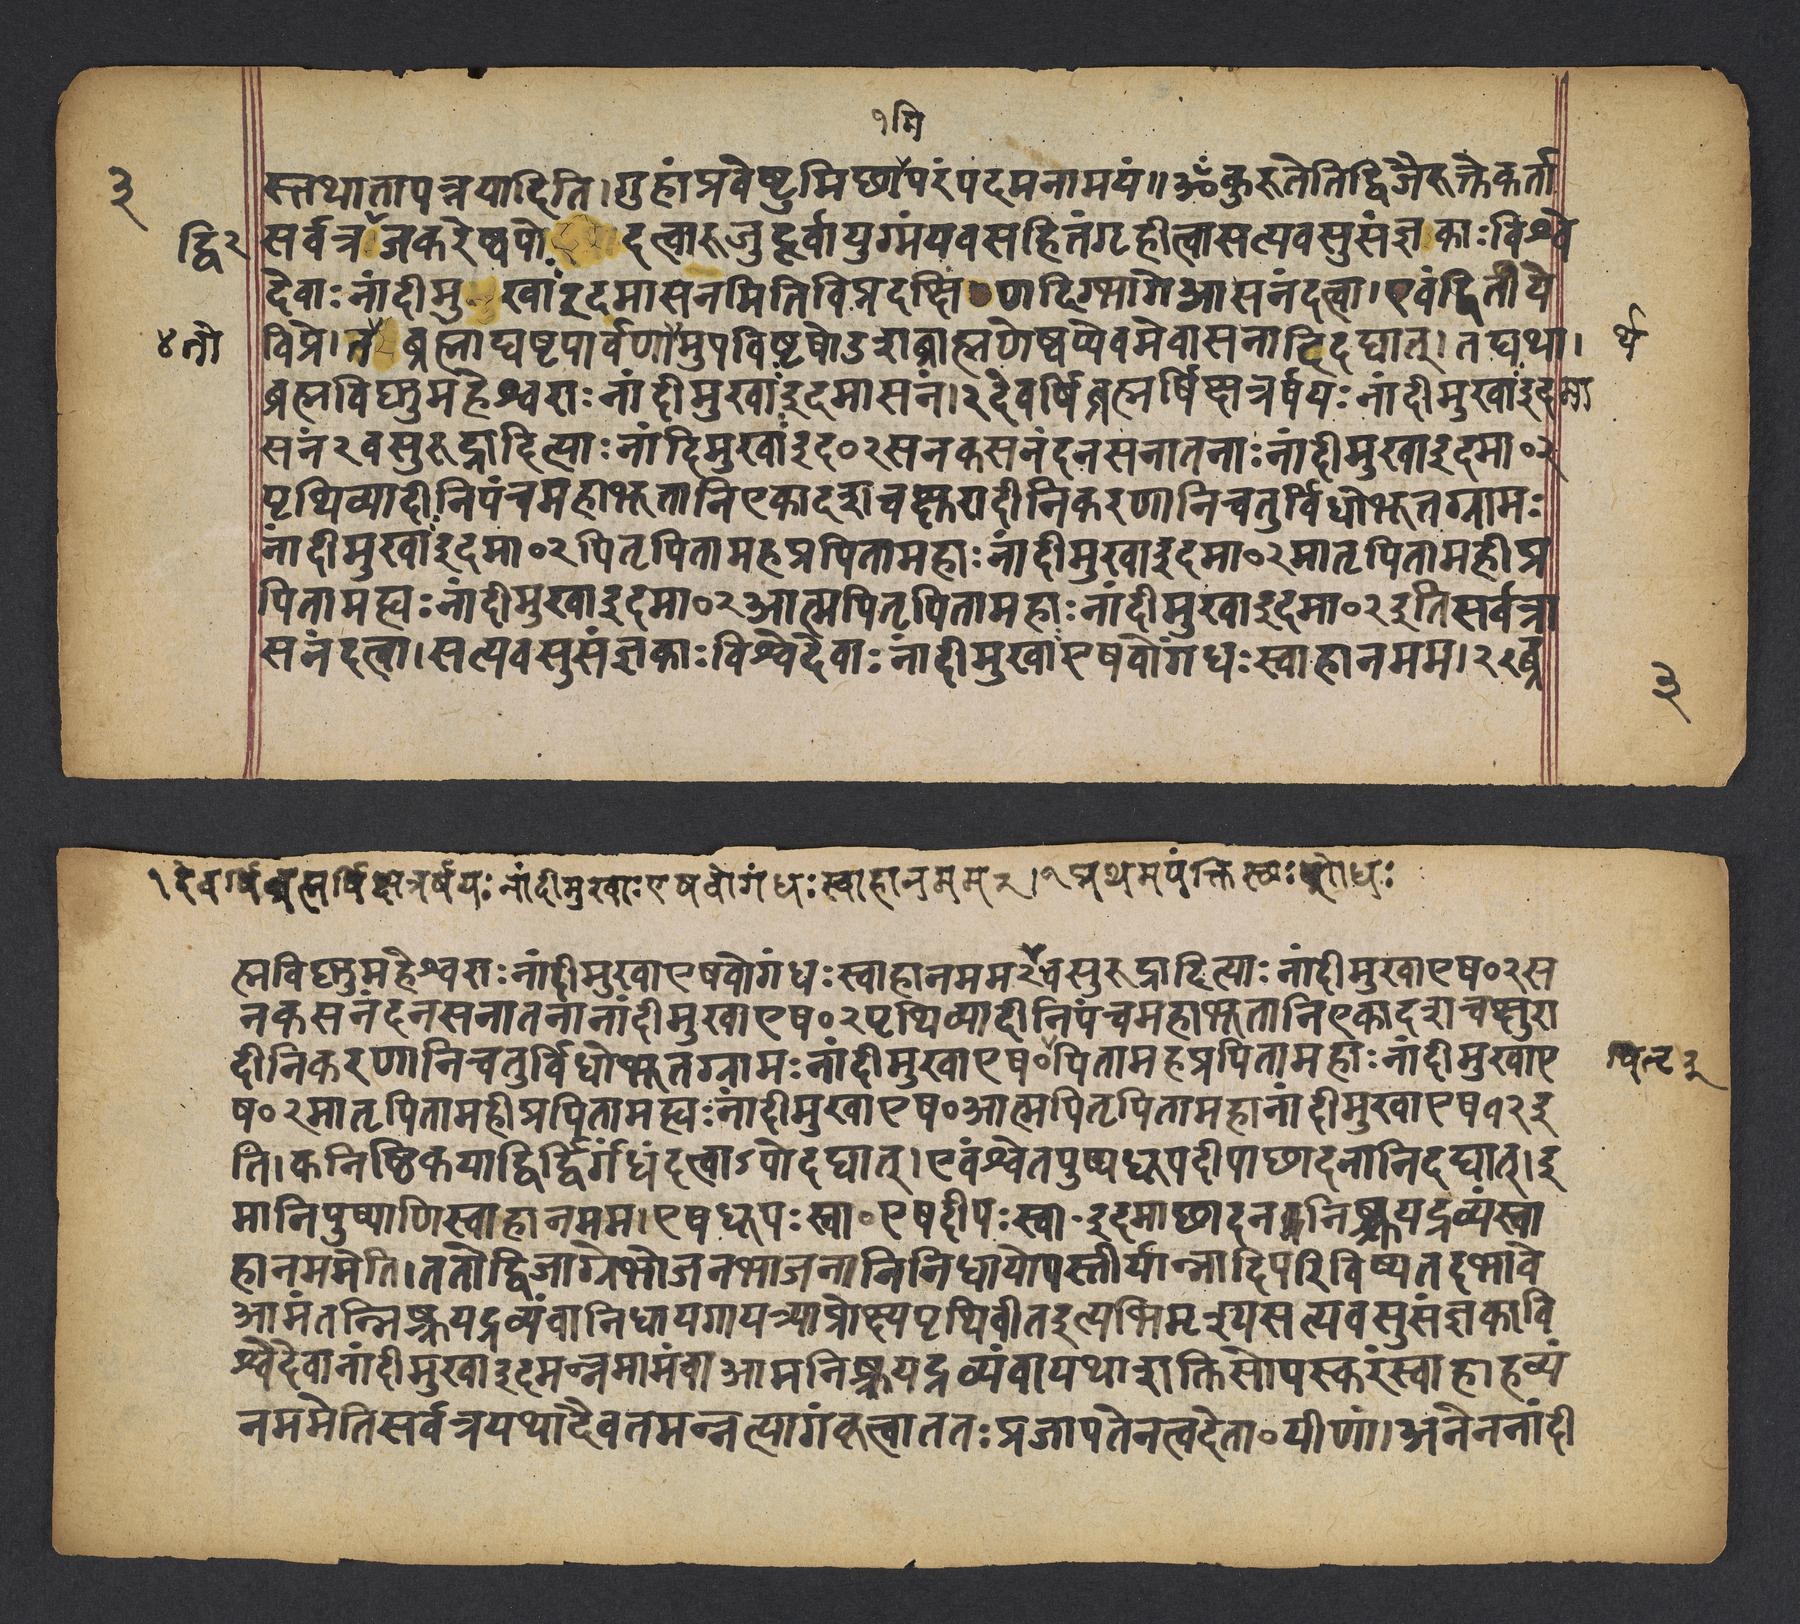 १ मि
३
स्तथातापत्रयादिति।गुहांप्रवेष्टुमिछापरंपदमनामयं॥ॐकुरुतेतिद्विजैरुक्तेकर्ता
द्वि २
सर्वत्रजकरेष्वपो दत्वारुजुदूर्वायुग्मंयवसहितंगृहीत्वासत्यवसुसंज्ञकाःविश्वे
देवाःनांदीमुखांइदमासनमितिविप्रदक्षिणदिग्भागेआसनंदत्वा।एवंद्वितीये
४ तौ
विप्रे। ब्रह्माद्यष्टपार्वणामुपविष्टषोडशब्राह्मणेष्वप्येवमेवासनादिदद्यात्।तद्यथा।
र्थ
ब्रह्मविष्णुमहेश्वराःनांदीमुखांइदमासनं।२देवर्षिब्रह्मर्षिक्षत्रर्षयःनांदीमुखांइदमा
सनं२वसुरुद्रादित्याःनांदिमुखांइद०२सनकसनंदनसनातनाःनांदीमुखाइदमा०२
पृथिव्यादीनिपंचमहाभूतानिएकादशचक्षुरादीनिकरणानिचतुर्विधोभूतग्रामः
नांदीमुखांइदमा०२पितृपितामहप्रपितामहाःनांदीमुखाइदमा०२मातृपितामहीप्र
पितामह्यःनांदीमुखाइदमा०२आत्मपितृपितामहाःनांदीमुखाइदमा०२इतिसर्वत्रा
सनंदत्वा।सत्यवसुसंज्ञकाःविश्वेदेवाःनांदीमुखांएषवोगंधःस्वाहानमम।२२ब्र
३
१देवर्षिब्रह्मर्षिक्षत्रर्षयःनांदीमुखाःएषवोगंधःस्वाहानमम२।२प्रथमपंक्तिस्थःशोधः
ह्मविष्णुमहेश्वराःनांदीमुखाएषवोगंधःस्वाहानमम२वसुरुद्रादित्याःनांदीमुखाएष०२स
नकसनंदनसनातनानांदीमुखाएष०२पृथिव्यादीनिपंचमहाभूतानिएकादशचक्षुरा
दीनिकरणानिचतुर्विधोभूतग्रामःनांदीमुखाएष०पितामहप्रपितामहाःनांदीमुखाए
ष०२मातृपितामहीप्रपितामह्यःनांदीमुखाएष०आत्मपितृपितामहानांदीमुखाएष०२इ
ति।कनिष्ठिकयाद्विर्द्विर्गंधंदत्वाऽपोदद्यात्।एवंश्वेतपुष्पधूपदीपाछादनानिदद्यात्।इ
मानिपुष्पाणिस्वाहानमम।एषधूपःस्वा०एषदीपःस्वा०इदमाछादननिष्क्रयद्रव्यंस्वा
हानममेति।ततोद्विजाग्रेभोजनभाजनानिनिधायोपस्तीर्यान्नादिपरिविष्यतदभावे
आमंतन्निष्क्रयद्रव्यंवानिधायगायत्र्याप्रोक्ष्यपृथिवीतइत्यभिमृश्यसत्यवसुसंज्ञकावि
श्वेदेवानांदीमुखाइदमन्नमामंवाआमनिष्क्रयद्रव्यंवायथाशक्तिसोपस्करंस्वाहाहव्यं
नममेतिसर्वत्रयथादैवतमन्नत्यागंकृत्वाततःप्रजापतेनत्वदेता०यीणां।अनेननांदी